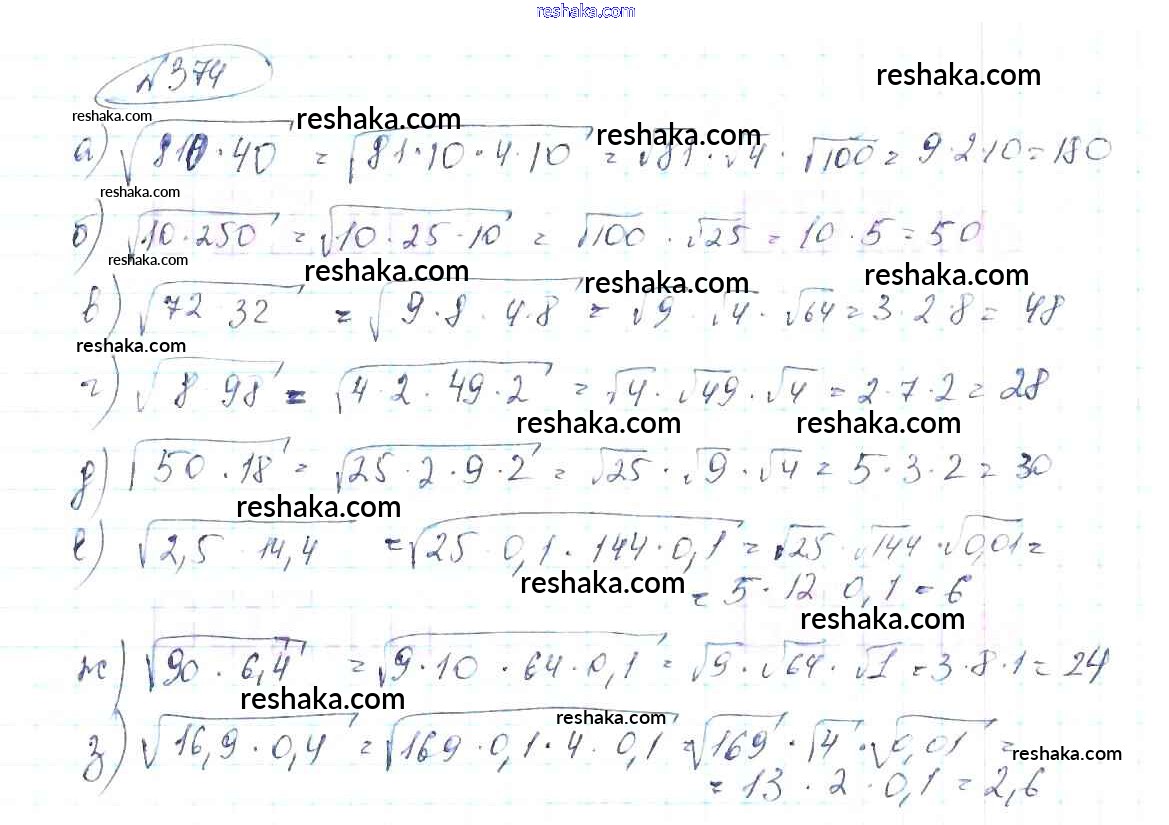 reshaka.com
№374
reshaka.com
reshaka.com
reshaka.com
reshaka.com
а) √810·40 = √81·10·4·10 = √81·√4·√100 = 9·2·10=180
reshaka.com
б) √10·250 = √10·25·10 = √100·√25 = 10·5=50
reshaka.com
reshaka.com
reshaka.com
reshaka.com
в) √72 32 = √9·8·4·8 = √9·√4·√64 = 3·2·8= 48
reshaka.com
г) √8 98 = √4·2·49·2 = √4·√49·√4 = 2·7·2= 28
reshaka.com
reshaka.com
д) √50·18 = √25·2·9·2 = √25·√9·√4 = 5·3·2= 30
reshaka.com
е) √2,5·14,4 = √25·0,1·144·0,1 = √25·√144·√0,01 =
reshaka.com
= 5·12·0,1 = 6
reshaka.com
ж) √90·6,4 = √9·10·64·0,1 = √9·√64·√1 = 3·8·1= 24
reshaka.com
reshaka.com
з) √16,9·0,4 = √169·0,1·4·0,1 = √169·√4·√0,01 =
reshaka.com
= 13·2·0,1 = 2,6